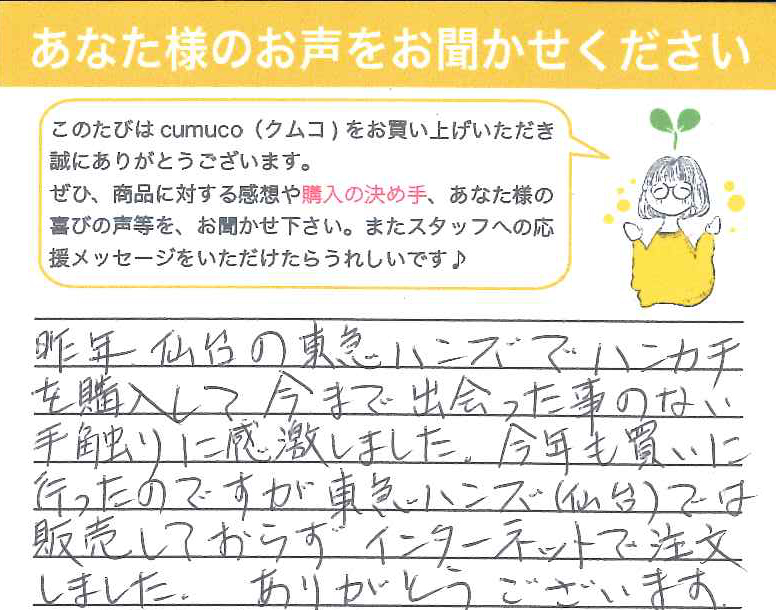 あなた様のお声をお聞かせください
このたびは cumuco（クムコ）をお買い上げいただき
誠にありがとうございます。
ぜひ、商品に対する感想や購入の決め手、あなた様の
喜びの声等を、お聞かせ下さい。またスタッフへの応
援メッセージをいただけたらうれしいです♪
昨年 仙台の東急ハンズでハンカチ
を購入して 今まで出会った事のない
手触りに感激しました。今年も買いに
行ったのですが東急ハンズ(仙台)では
販売しておらず インターネットで注文
しました。 ありがとうございます。